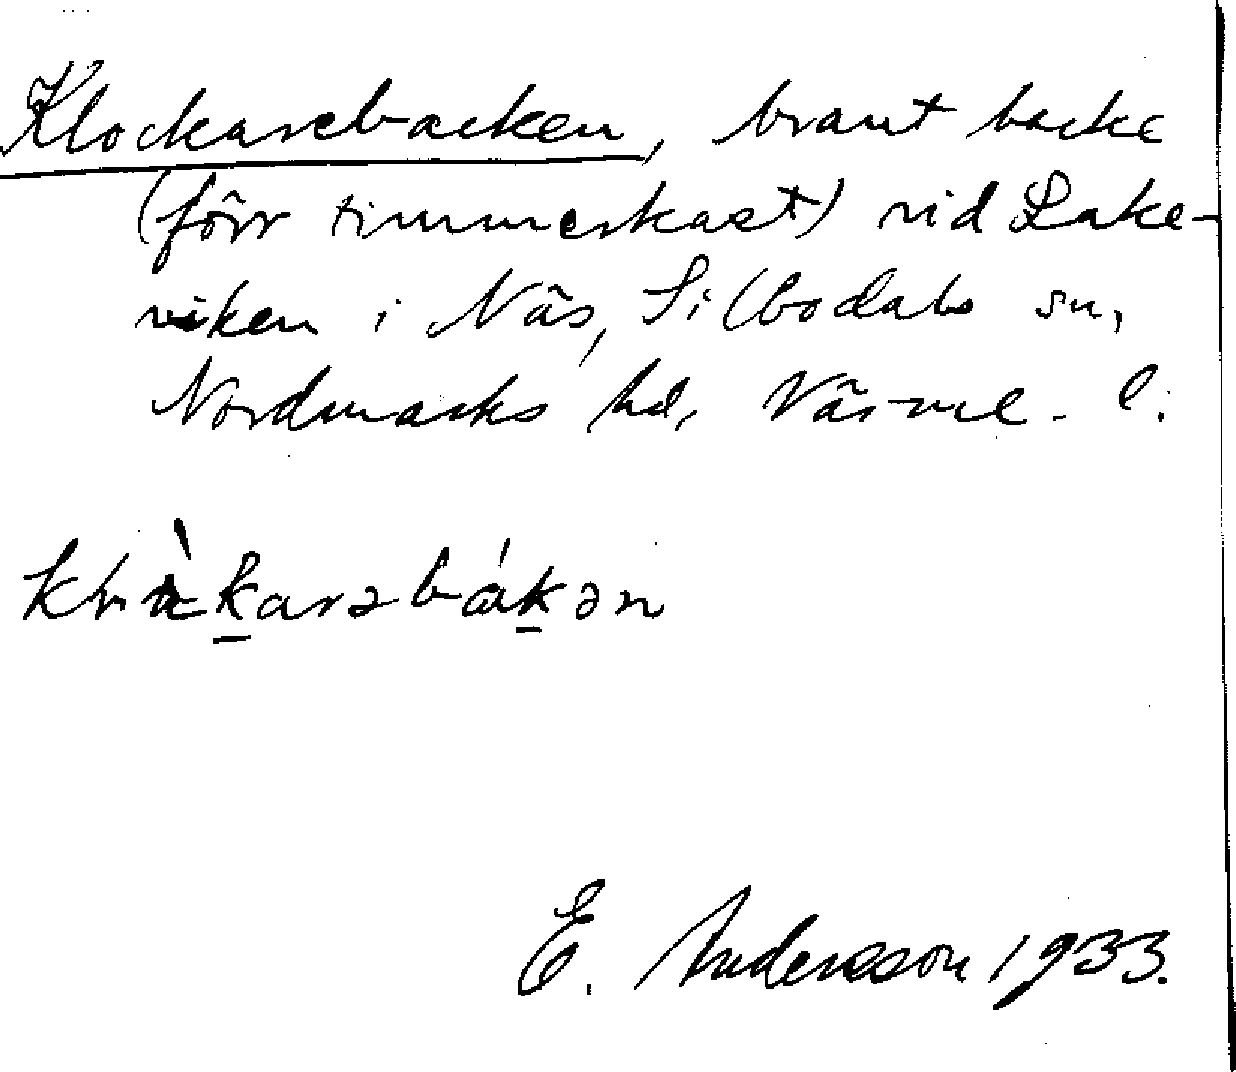 Klockarebacken, brant backe
(förr timmerkast) vid Lake-
viken i Näs, Silbodals sn,
Nordmarks hd, Värml. l.
E. Andersson 1933.